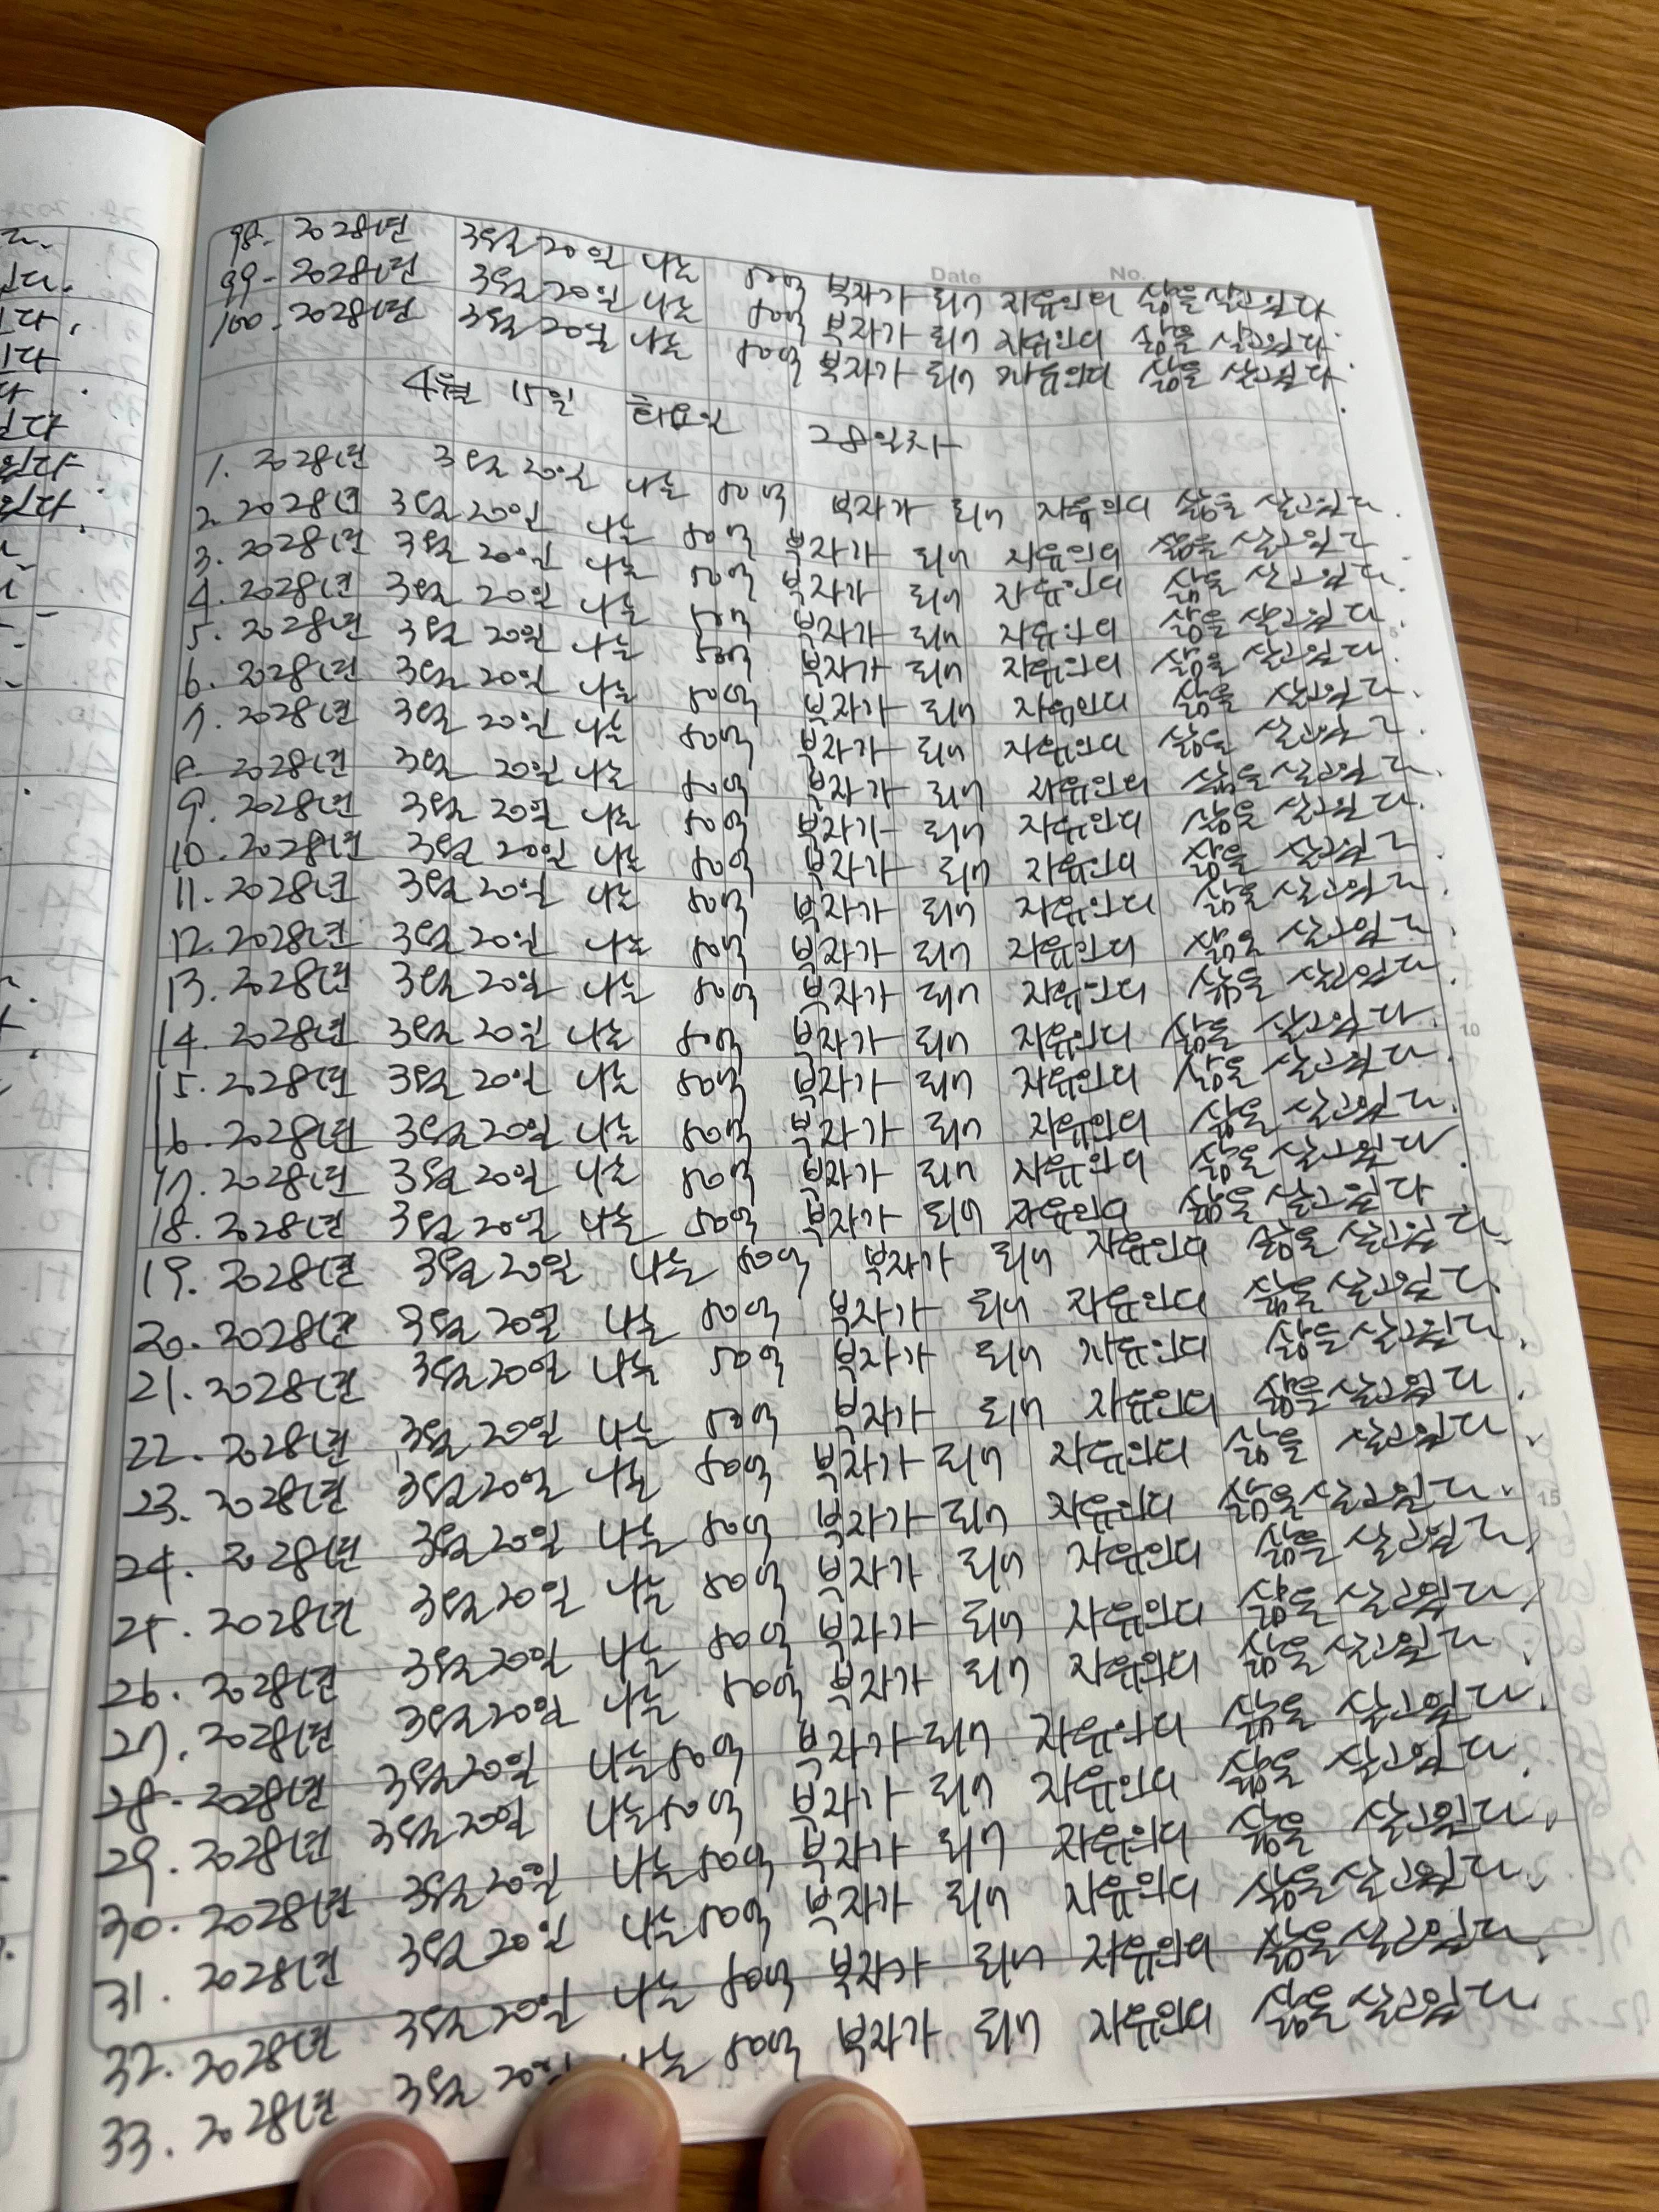 Date No.
98. 2028년 3월 20일 나는 50억 부자가 되어 자유인의 삶을 살고있다
99. 2028년 3월 20일 나는 50억 부자가 되어 자유인의 삶을 살고있다.
100. 2028년 3월 20일 나는 50억 부자가 되어 자유인의 삶을 살고있다.
4월 15일 화요일 28일차
1. 2028년 3월 20일 나는 50억 부자가 되어 자유인의 삶을 살고있다.
2. 2028년 3월 20일 나는 50억 부자가 되어 자유인의 삶을 살고있다.
3. 2028년 3월 20일 나는 50억 부자가 되어 자유인의 삶을 살고있다.
4. 2028년 3월 20일 나는 50억 부자가 되어 자유인의 삶을 살고있다.
5. 2028년 3월 20일 나는 50억 부자가 되어 자유인의 삶을 살고있다.
6. 2028년 3월 20일 나는 50억 부자가 되어 자유인의 삶을 살고있다.
7. 2028년 3월 20일 나는 50억 부자가 되어 자유인의 삶을 살고있다.
8. 2028년 3월 20일 나는 50억 부자가 되어 자유인의 삶을 살고있다.
9. 2028년 3월 20일 나는 50억 부자가 되어 자유인의 삶을 살고있다.
10. 2028년 3월 20일 나는 50억 부자가 되어 자유인의 삶을 살고있다.
11. 2028년 3월 20일 나는 50억 부자가 되어 자유인의 삶을 살고있다.
12. 2028년 3월 20일 나는 50억 부자가 되어 자유인의 삶을 살고있다.
13. 2028년 3월 20일 나는 50억 부자가 되어 자유인의 삶을 살고있다.
14. 2028년 3월 20일 나는 50억 부자가 되어 자유인의 삶을 살고있다.
15. 2028년 3월 20일 나는 50억 부자가 되어 자유인의 삶을 살고있다.
16. 2028년 3월 20일 나는 50억 부자가 되어 자유인의 삶을 살고있다.
17. 2028년 3월 20일 나는 50억 부자가 되어 자유인의 삶을 살고있다.
18. 2028년 3월 20일 나는 50억 부자가 되어 자유인의 삶을 살고있다
19. 2028년 3월 20일 나는 50억 부자가 되어 자유인의 삶을 살고있다.
20. 2028년 3월 20일 나는 50억 부자가 되어 자유인의 삶을 살고있다.
21. 2028년 3월 20일 나는 50억 부자가 되어 자유인의 삶을 살고있다.
22. 2028년 3월 20일 나는 50억 부자가 되어 자유인의 삶을 살고있다.
23. 2028년 3월 20일 나는 50억 부자가 되어 자유인의 삶을 살고있다.
24. 2028년 3월 20일 나는 50억 부자가 되어 자유인의 삶을 살고있다.
25. 2028년 3월 20일 나는 50억 부자가 되어 자유인의 삶을 살고있다.
26. 2028년 3월 20일 나는 50억 부자가 되어 자유인의 삶을 살고있다.
27. 2028년 3월 20일 나는 50억 부자가 되어 자유인의 삶을 살고있다.
28. 2028년 3월 20일 나는 50억 부자가 되어 자유인의 삶을 살고있다.
29. 2028년 3월 20일 나는 50억 부자가 되어 자유인의 삶을 살고있다.
30. 2028년 3월 20일 나는 50억 부자가 되어 자유인의 삶을 살고있다.
31. 2028년 3월 20일 나는 50억 부자가 되어 자유인의 삶을 살고있다.
32. 2028년 3월 20일 나는 50억 부자가 되어 자유인의 삶을 살고있다.
33. 2028년 3월 20일 나는 50억 부자가 되어 자유인의 삶을 살고있다.
10
15